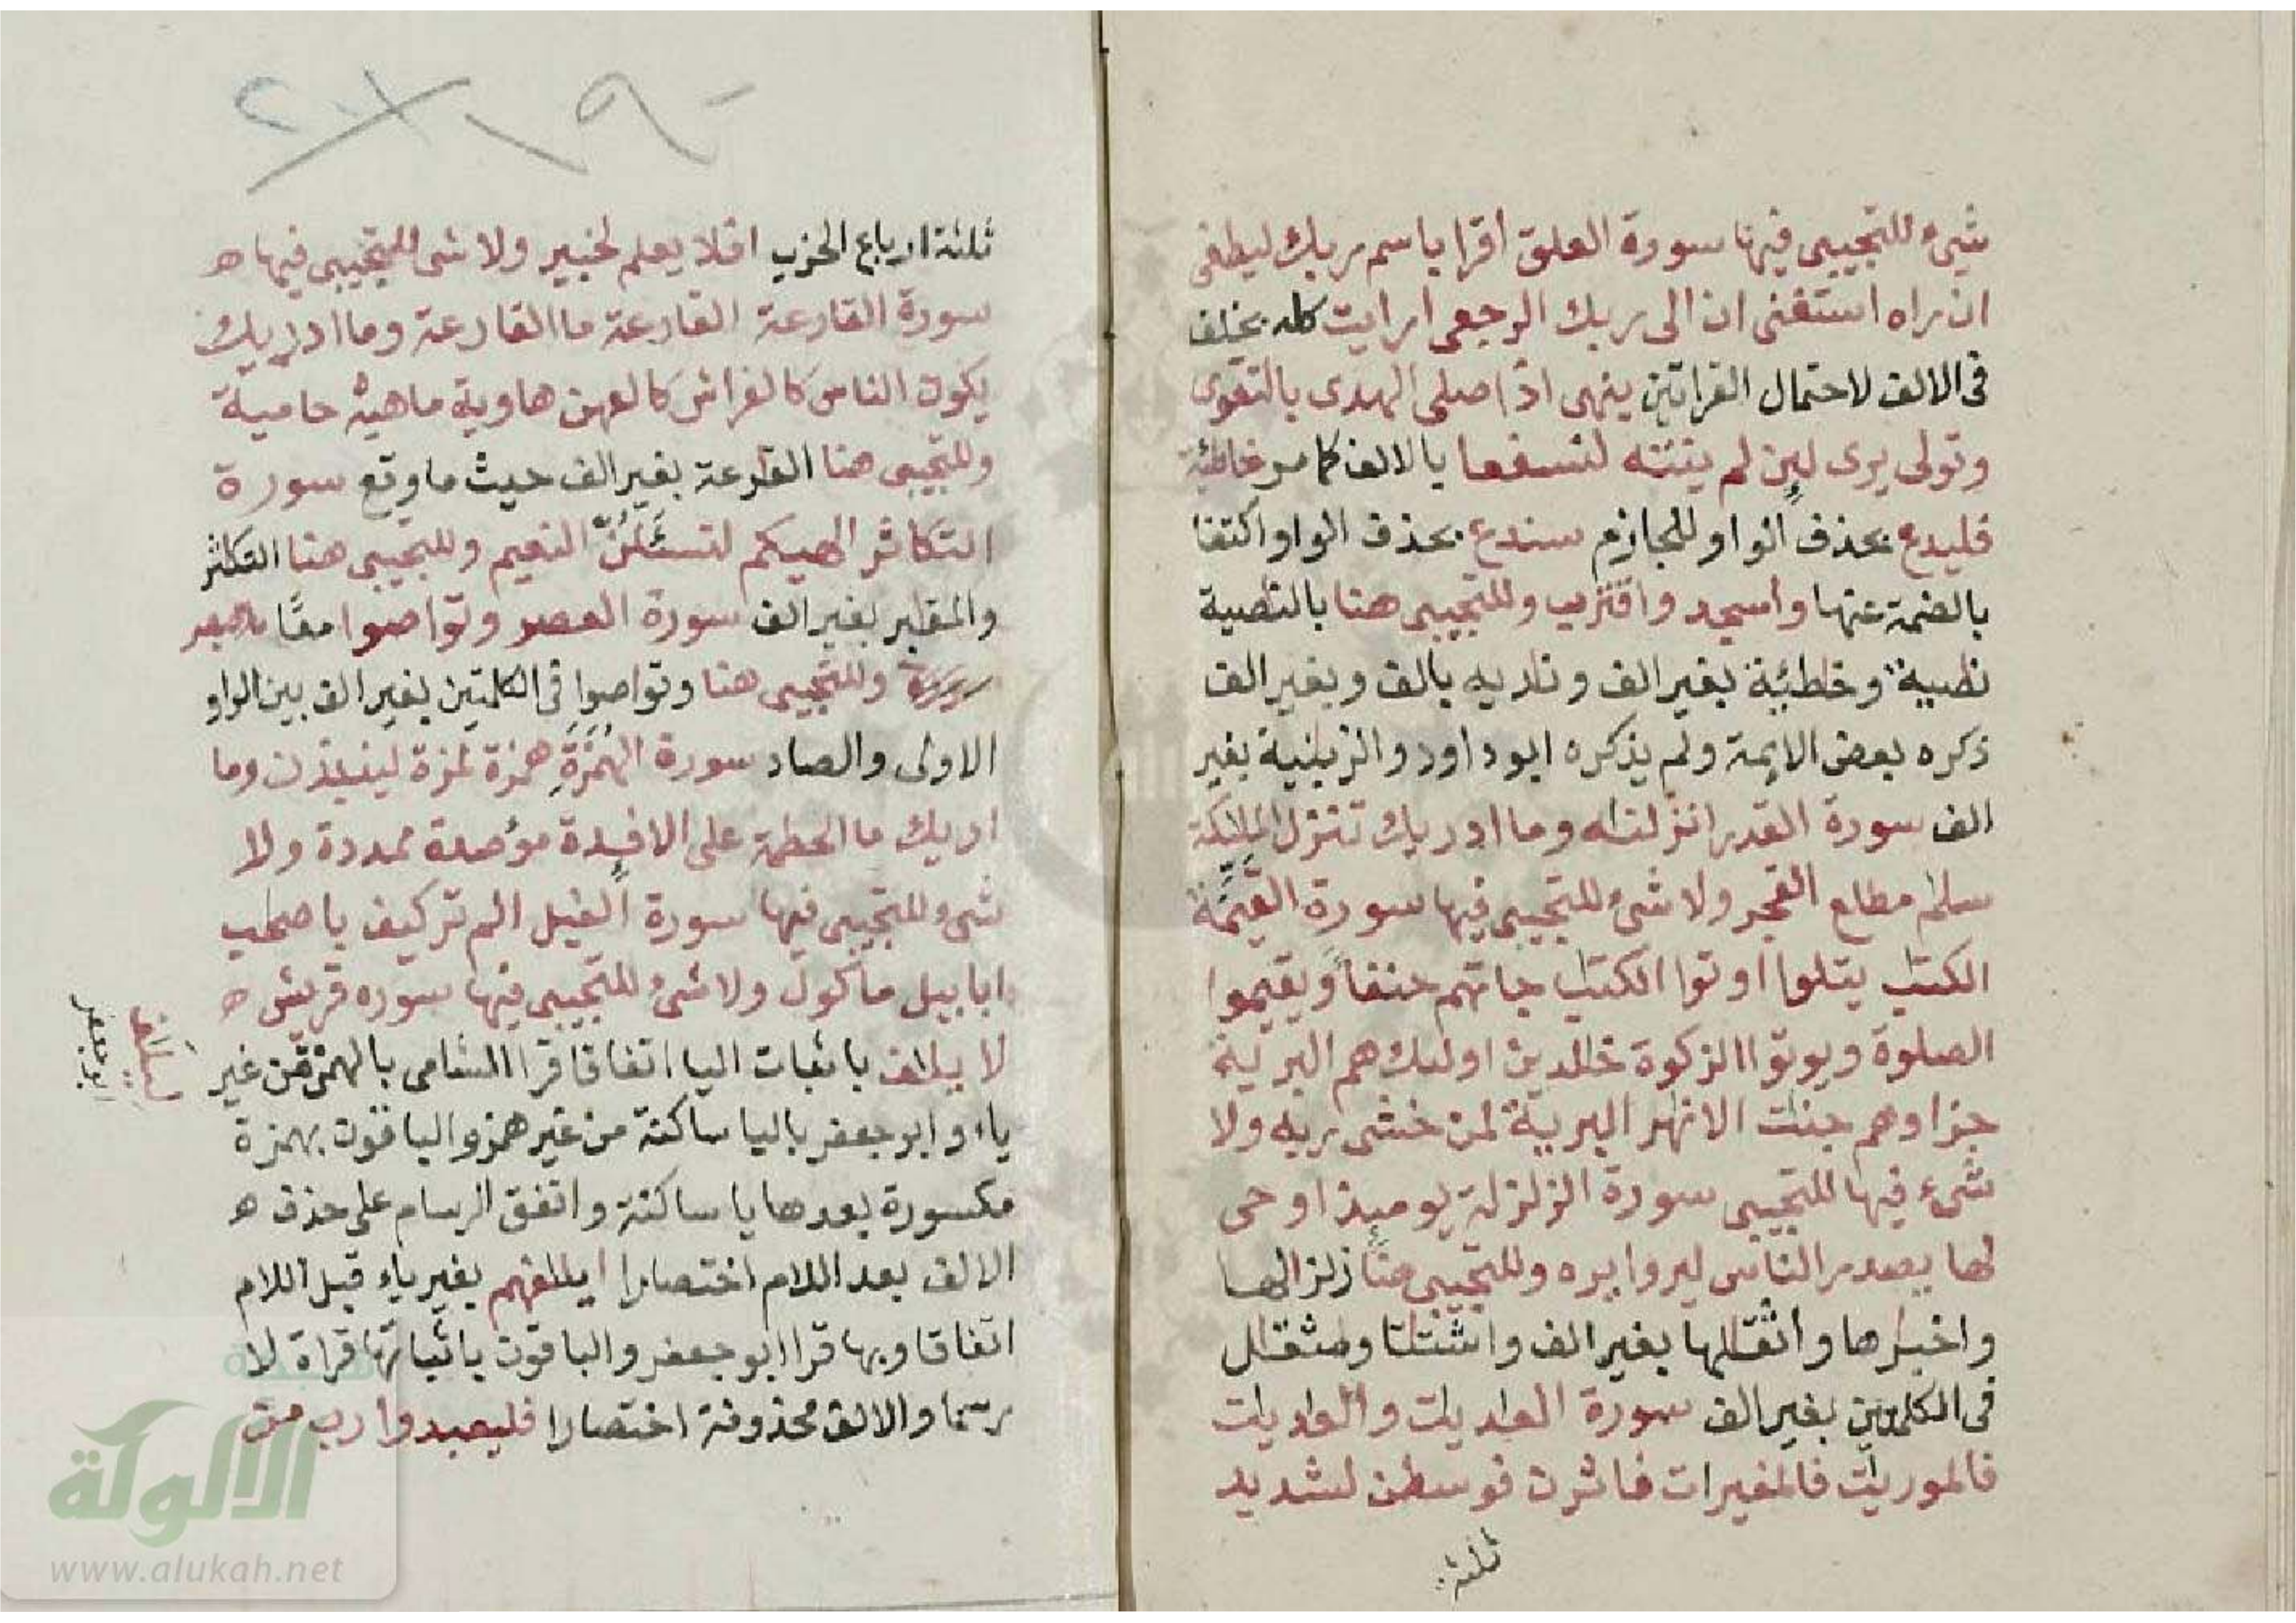 شيء للتجيبى فيها سورة العلق اقرا باسم ربك ليطغى
ان راه استغنى ان الى ربك الرجعى ارايت كله بخلف
فى الالف لاحتمال القراتين ينهى اذا صلى الهدى بالتقوى
وتولى يرى لين لم ينته لنسفعا بالالف كما مر خاطئة
فليدع بحذف الواو للجازم سندع بحذف الواو اكتفا
بالضمة عنها واسجد واقترب وللتجيبى هنا بالنصية
نصية وخطئة بغير الف وناديه بالف وبغير الف
ذكره بعض الايمة ولم يذكره ابو داود والزبنية بغير
الف سورة القدر انزلنه وما ادريك تنزل الملئكة
سلم مطلع الفجر ولا شئ للتجيبى فيها سورة القيمة
الكتب يتلوا اوتوا الكتب جاتهم حنفا ويقيموا
الصلوة ويوتوا الزكوة خلدين اوليك هم البرية
جزاوهم جنت الانهر البرية لمن خشى ربه ولا
شىء فيها للتجيبى سورة الزلزلة يوميذ اوحى
لها يصدر الناس ليروا يره وللتجيبى هنا زلزالها
واخبرها واثقلها بغير الف واشتتا ومثقال
فى الكلمتين بغير الف سورة العديت والعديت
فالموريت فالمغيرات فاثرن فوسطن لشديد
ثلثة
ثلثة ارباع الحزب افلا يعلم لخبير ولا شى للتجيبى فيها ه
سورة القارعة القارعة ما القارعة وما ادريك
يكون الناس كالفراش كالعهن هاوية ماهيه حامية
وللتجيبى هنا القرعة بغير الف حيث ما وقع سورة
التكاثر الهيكم لتسئلن النعيم وللتجيبى هنا التكثر
والمقبر بغير الف سورة العصر وتواصوا معًا
وللتجيبى هنا وتوصوا فى الكلمتين بغير الف بين الواو
الاولى والصاد سورة الهمزة همزة لمزة لينبذن وما
ادريك ما الحطمة على الافيدة مؤصدة ممددة ولا
شىء للتجيبى فيها سورة الفيل الم تر كيف باصحب
ابابيل ماكول ولا شئ للتجيبى فيها سوره قريش ه
لا يلف باثبات اليا اتفاقا قرا الشامى بالهمزة من غير
ياء وابو جعفر باليا ساكنة من غير همز والباقون بهمزة
مكسورة بعدها يا ساكنة واتفق الرسام على حذف ه
الالف بعد اللام اختصارا ايلفهم بغير ياء قبل اللام
اتفاقا وبها قرا ابو جعفر والباقون باثباتها قراة لا
رسما والالف محذوفة اختصارا فليعبدوا رب من
ابو جعفر
الالوكة
www.alukah.net